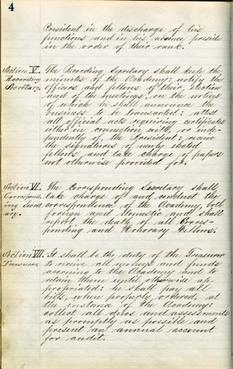 4
President in the discharge of his
functions and in his absence preside
in the order of their rank.
Section V.
Recording
Secretary.
The Recording Secretary shall keep the
minutes of the Academy; notify the
officers and fellows of their election
and of the meetings, in the notice
of which he shall announce the
business to be transacted; attest
all official acts requiring
either in connection with, or inde-
pendently of the President; secure
the signatures of newly elected
fellows, and take charge of papers
not otherwise provided for.
Section VI.
The Corresponding Secretary shall
take charge of and conduct the
correspondence of the Academy, both
foreign and domestic and shall
report the death of all Corres-
ponding and Honorary Fellows.
Section VII.
Treasurer
It shall be the duty of the Treasurer
to receive all moneys and funds
accruing to the Academy and to
retain them until otherwise ap-
propriated; he shall pay all
bills, when properly ordered, at
the instance of the Academy;
collect all dues and assessments
as promptly as possible and
present an annual account
for audit.